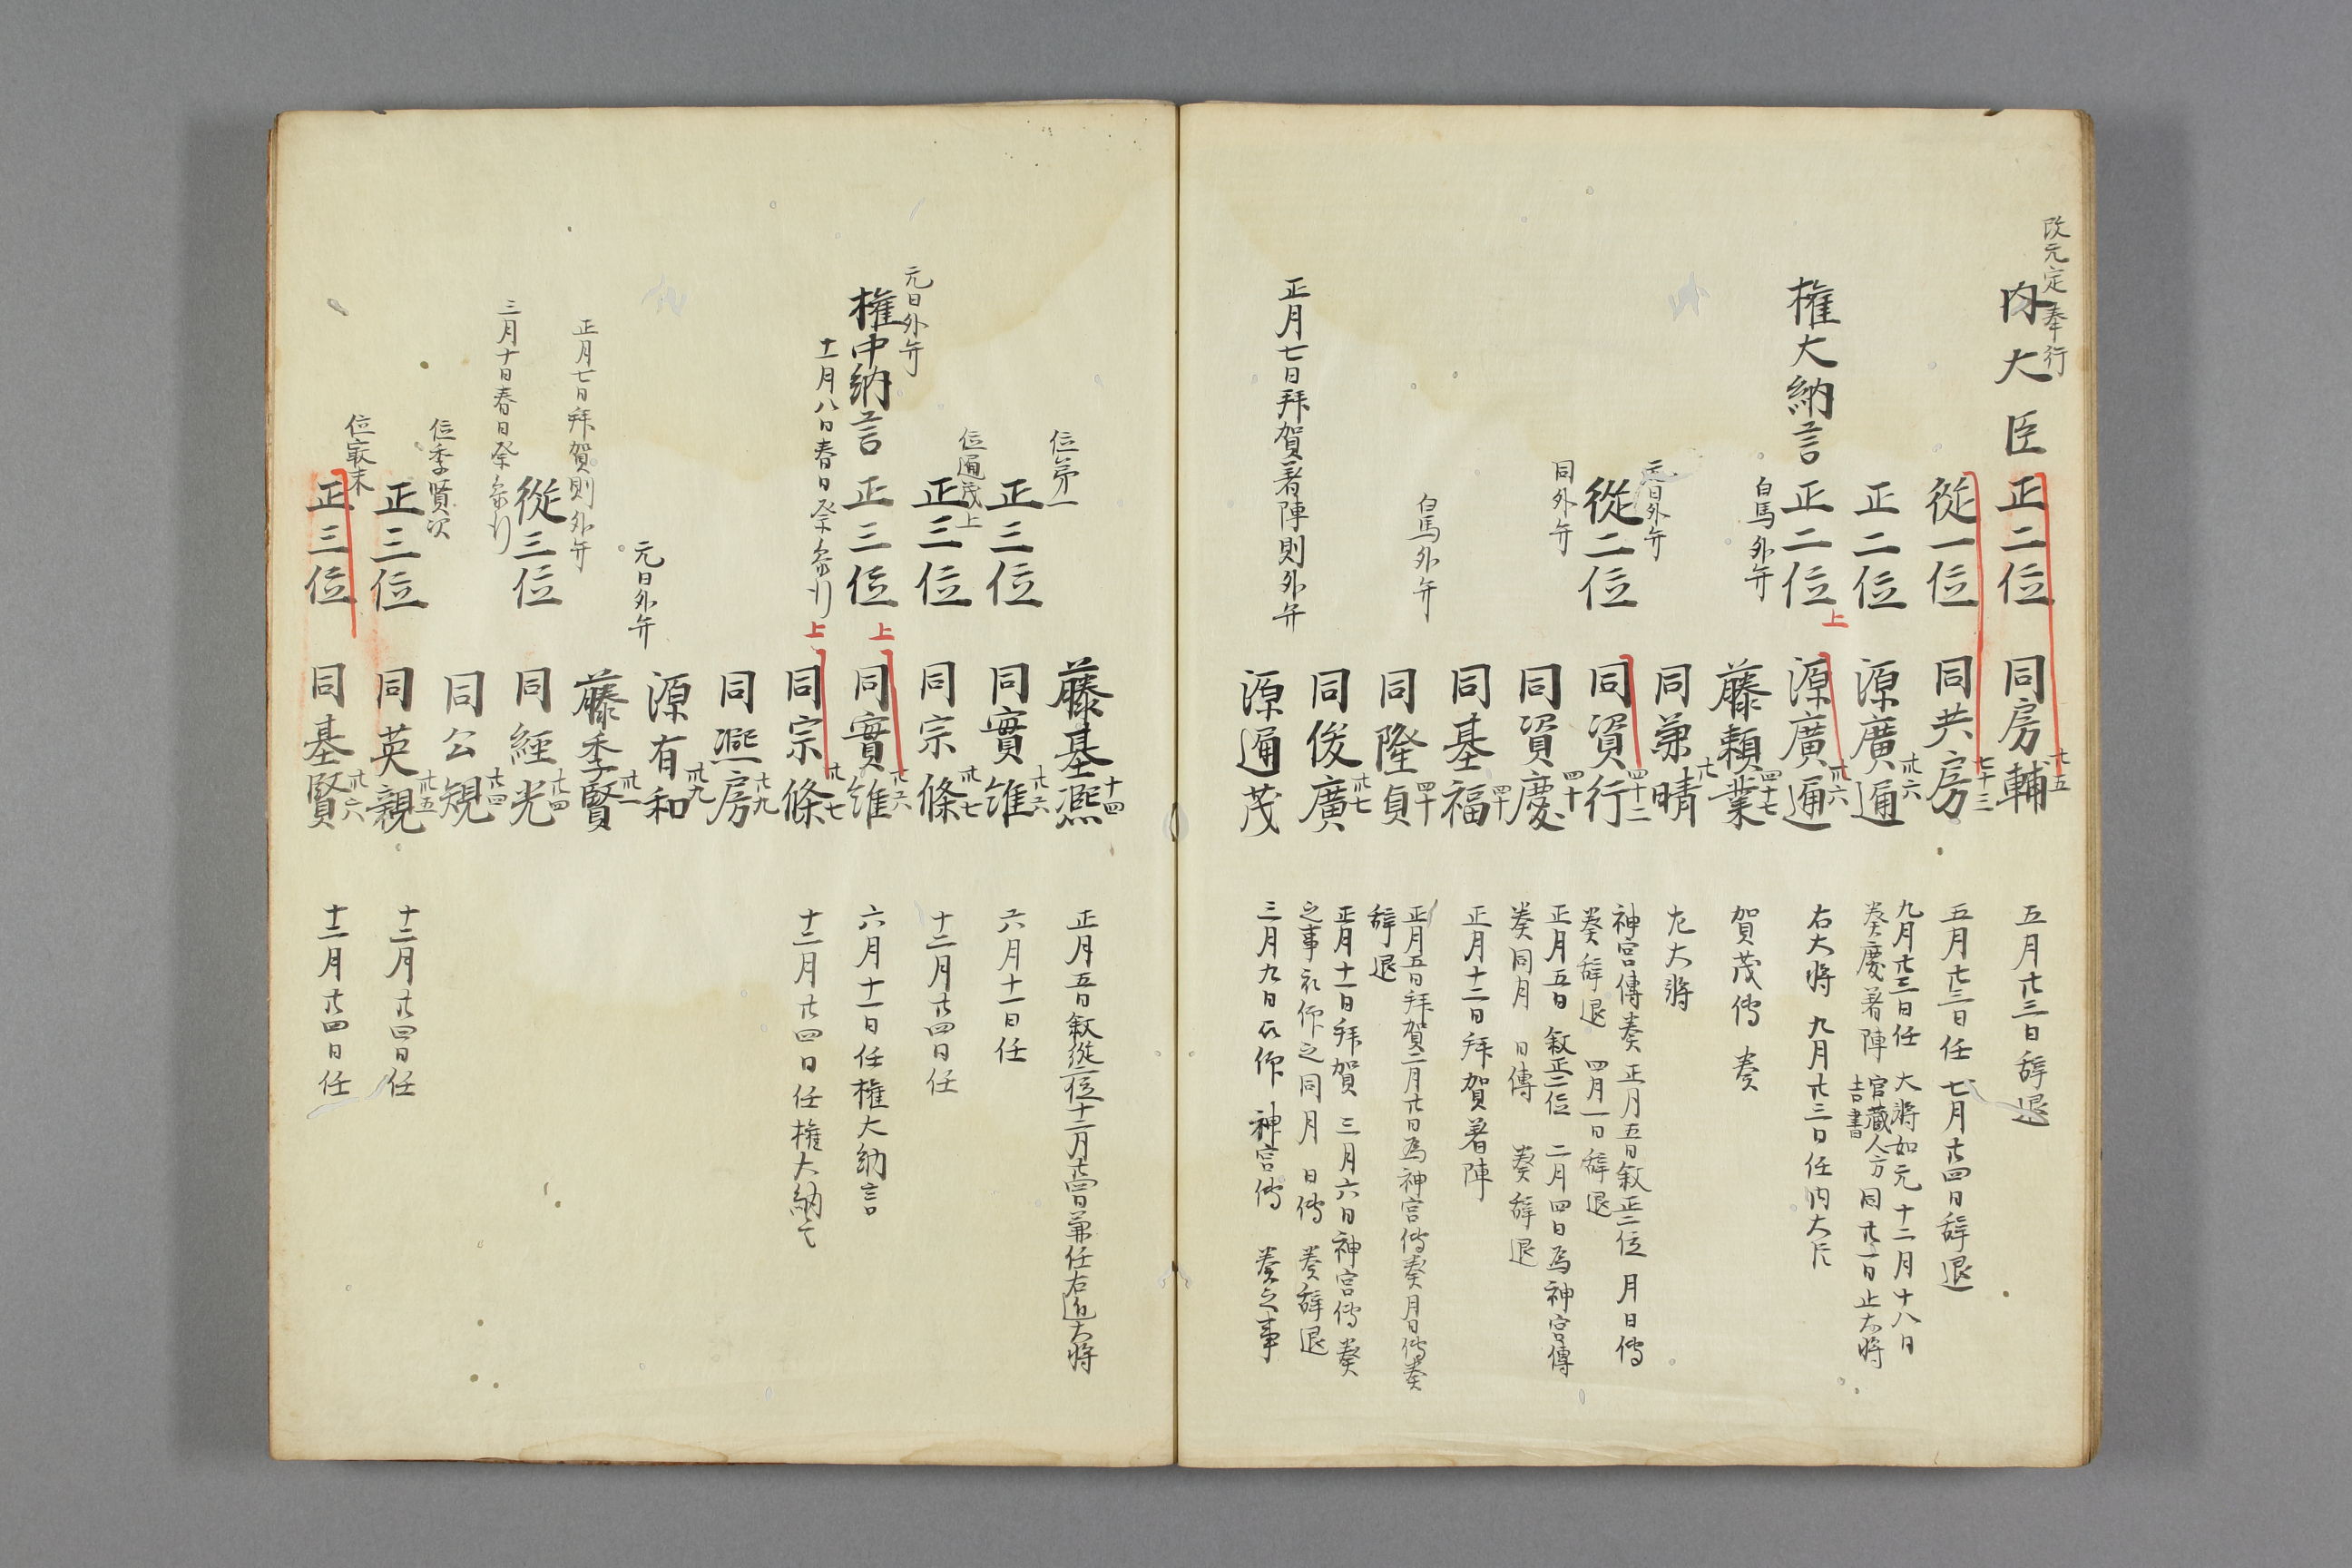 改元定奉行
内大臣 正二位 同房輔 廿五 五月廿三日辞退
從一位 同共房 七十三 五月廿三日任 七月廿四日辞退
正二位 源廣通 卅六 九月廿三日任 大将如元 十二月十八日
奏慶著陣 官藏人方吉書 同廿一日止大将
權大納言 正二位 上 源廣通 卅六 右大将 九月廿三日任内大臣
白馬外弁 藤頼業 四十七 賀茂傳 奏
元日外弁 同兼晴 廿 左大将
從二位 同資行 四十二 神宮傳奏 正月五日叙正二位 月日傳
奏辞退 四月一日辞退
同外弁 同資慶 四十 正月五日 叙正二位 二月四日為神宮傳
奏同月 日傳 奏辞退
同基福 四十 正月十二日拜賀著陣
白馬外弁 同隆貞 四十 正月五日拜賀二月廿日為神宮傳奏月日傳奏
辞退
同俊廣 卅七 正月十一日拜賀 三月六日神宮傳奏
之事被仰之同月 日傳 奏辞退
正月七日拜賀著陣則外弁 源通茂 三月九日被仰 神宮傳 奏之事
位第一 藤基凞 十四 正月五日叙從二位十二月廿四日兼任右近大将
正三位 同實維 廿六 六月十一日任
位通茂上 正三位 同宗條 卅七 十二月廿四日任
元日外弁
權中納言 正三位 上 同實維 廿六 六月十一日任權大納言
十一月八日春日祭参行 上 同宗條 卅七 十二月廿四日任權大納言
同凞房 廿九
元日外弁 源有和 卅九
正月七日拜賀則外弁 藤季賢 卅一
三月十日春日祭参行 從三位 同經光 廿四
位季賢次 同公規 廿四
正三位 同英親 卅五 十二月廿四日任
位最末 正三位 同基賢 卅六 十二月廿四日任